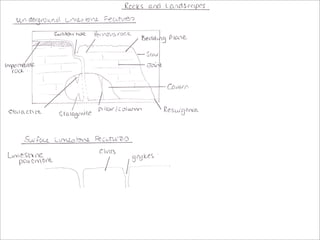 Rocks and Landscapes
Underground Limestone Features
Swallow hole
Limestone
Bedding Plane
Impermeable
rock
Joint
Cavern
Stalactite
Stalagmite
Pillar/Column
Resurgence
Surface Limestone Features
Limestone
pavement
Clints
grykes